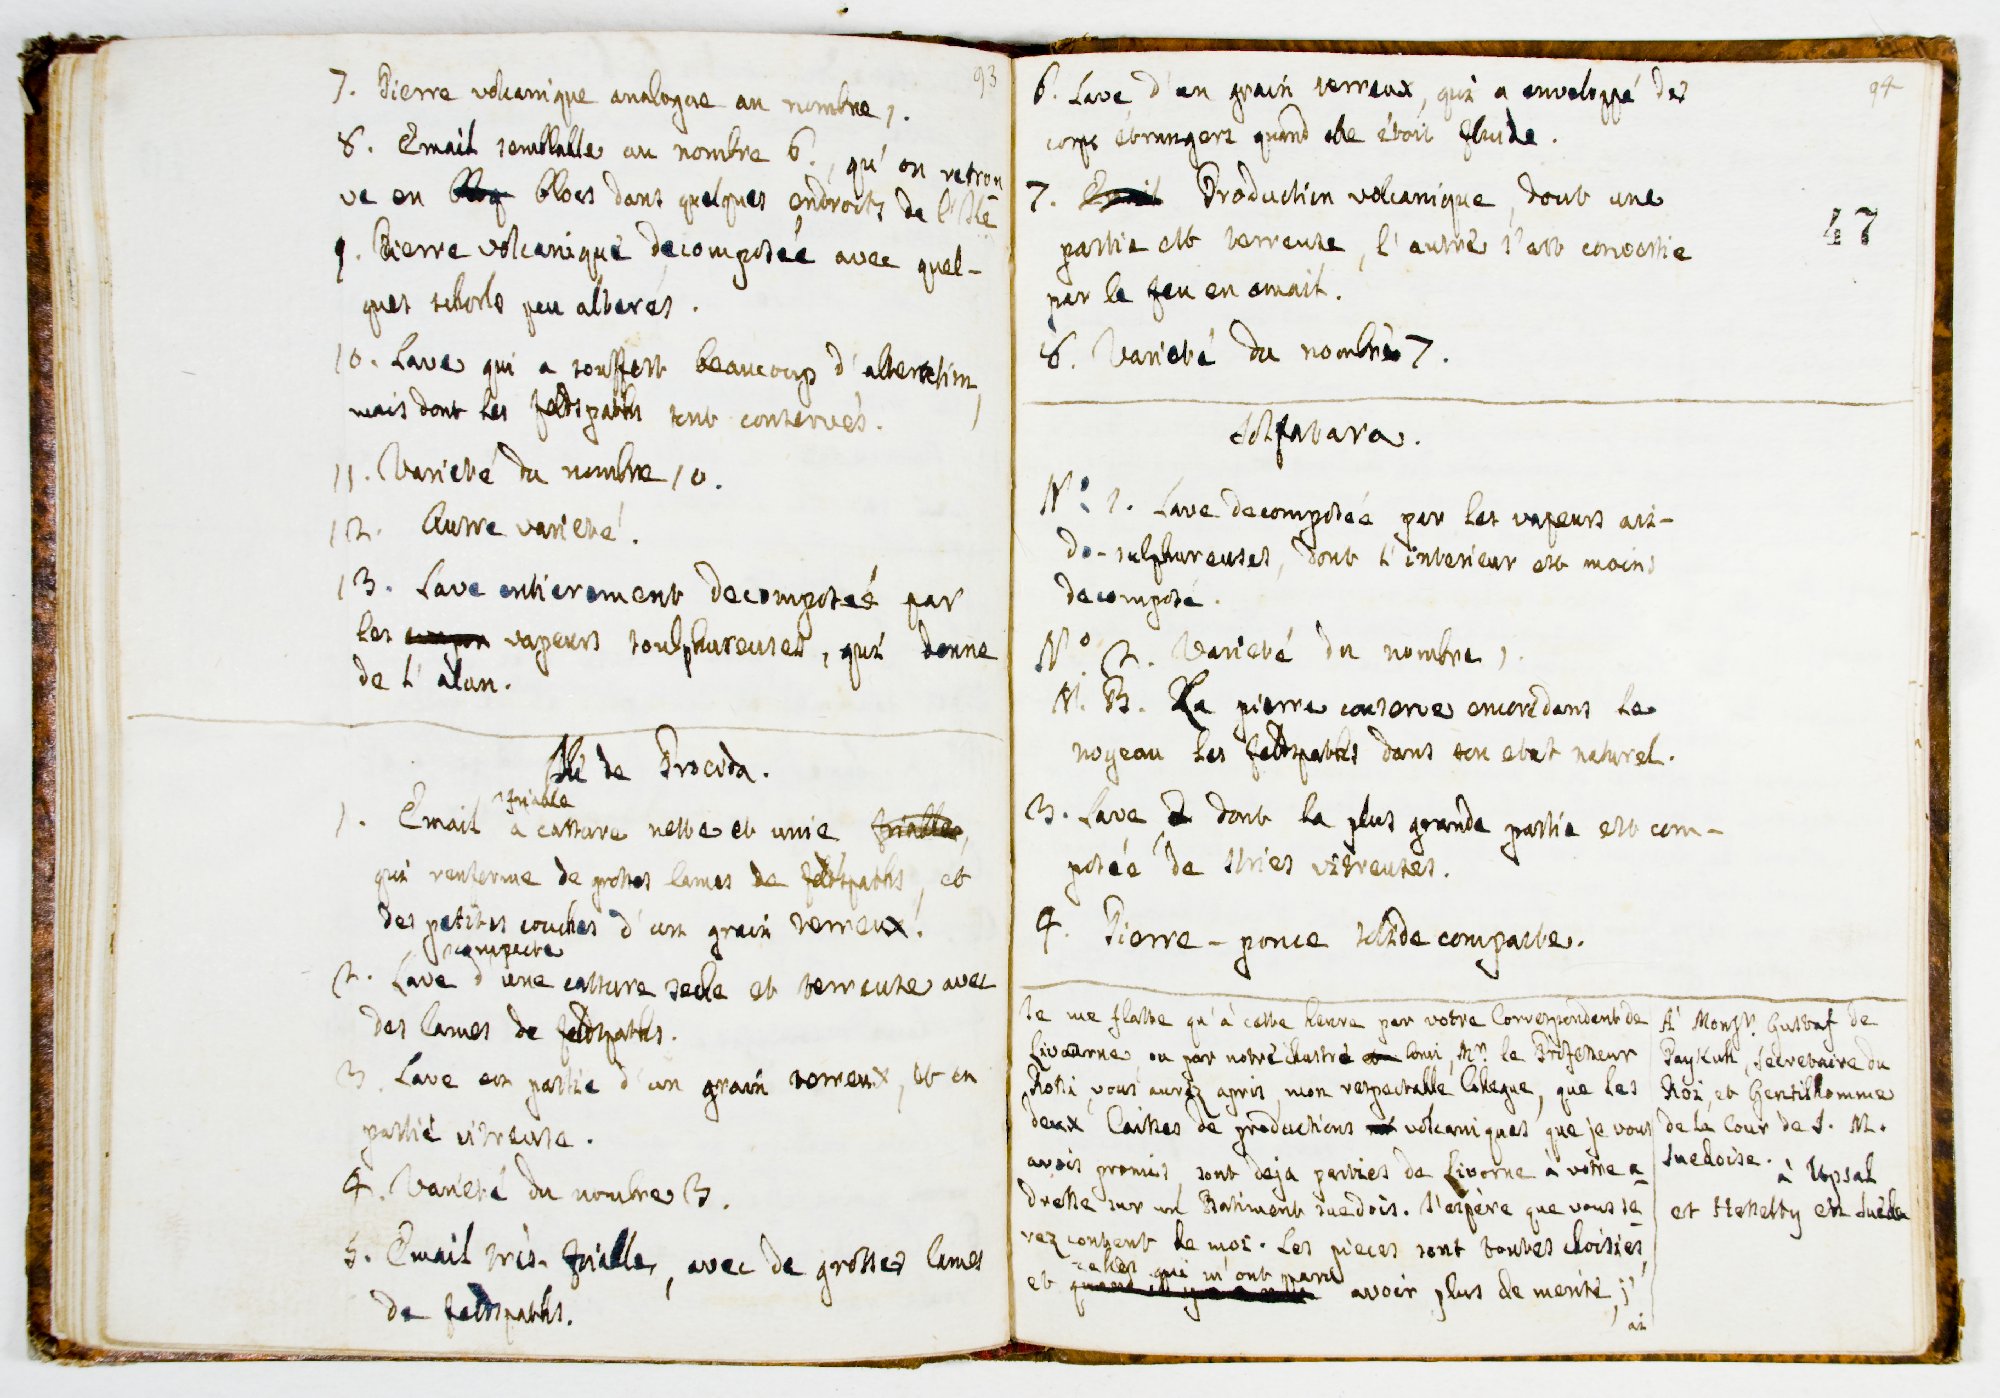 93
7. Pierre volcanique analogue au nombre 1.
8. Email semblable au nombre 6., qu'on retrou
ve en blocs dans quelques endroits de l'Ile
9. Pierre volcanique decomposée avec quel-
ques schorls peu alterés.
10. Lave qui a souffert beaucoup d'alteration,
mais dont les feldspaths sont conservés.
11. Varieté du nombre 10.
12. Autre varieté.
13. Lave entierement decomposée par
les vapeurs soulphureuses, qui donne
de l'alun.
Ile de Procida.
friable
1. Email à cassure nette et unie friable,
qui renferme de grosses lames de feldspaths, et
des petites couches d'un grain terreux.
compacte
2. Lave d'une cassure seche et terreuse avec
des lames de feldspaths.
3. Lave en partie d'un grain terreux, et en
partie vitreuse.
4. Varieté du nombre 3.
5. Email très-friable, avec de grosses lames
de feldspaths.
94
6. Lave d'un grain terreux, qui a enveloppé des
corps étrangers quand elle étoit fluide.
7. Email Production volcanique, dont une
partie est terreuse, l'autre s'est convertie
par le feu en email.
47
8. Varieté du nombre 7.
Solfatara.
N.º 1. Lave decomposée par les vapeurs aci-
do-sulphureuses, dont l'interieur est moins
decomposé.
Nº 2. Varieté du nombre 1.
N. B. La pierre conserve encore dans le
noyeau les feldspaths dans son etat naturel.
3. Lave dont la plus grande partie est com-
posée de stries vitreuses.
4. Pierre-ponce solide compacte.
Je me flatte qu'à cette heure par votre Correspondent de
Livourne, ou par notre illustre ami, Mr. le Professeur
Rossi, vous aurez apris, mon respectable Collegue, que les
deux Caisses de productions volcaniques que je vous
avois promis, sont deja parties de Livorne à votre a-
dresse sur un Batiment suedois. J'espère que vous se-
rez content de moi. Les pieces sont toutes choisies,
celles qui m'ont paru
et avoir plus de merite; j'
ai
A Monsr. Gustaf de
Paykull, Secretaire du
Roi, et Gentilhomme
de la Cour de S. M.
Suedoise.
à Upsal
et Hesselby en Suède